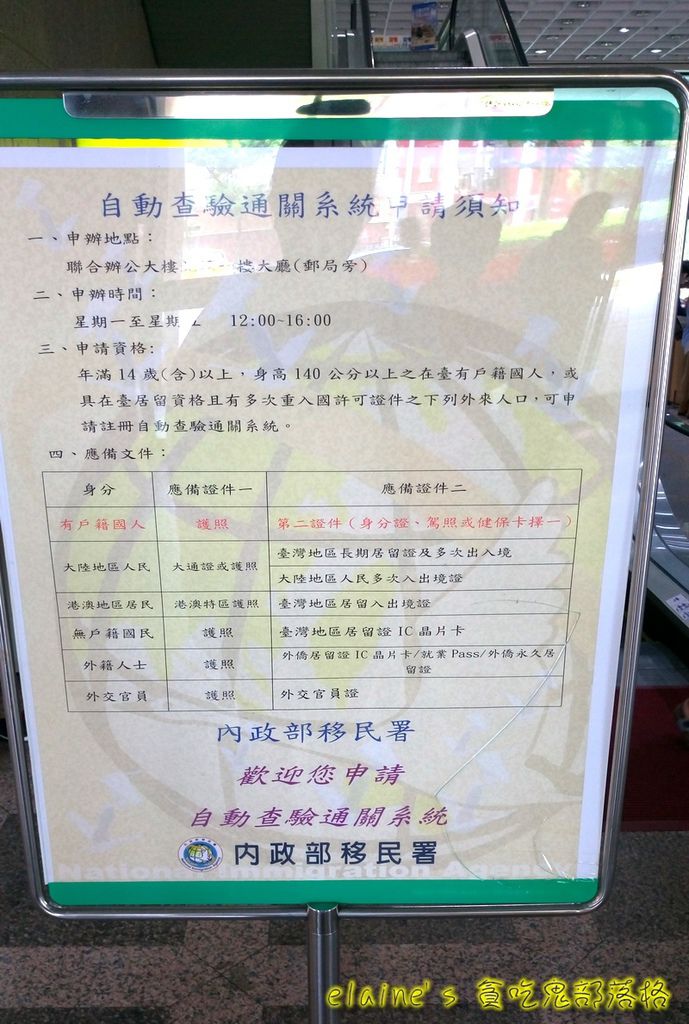 自動查驗通關系統申請須知
一、申辦地點：
聯合辦公大樓 樓大廳(郵局旁)
二、申辦時間：
星期一至星期 12:00~16:00
三、申請資格:
年滿 14 歲(含)以上，身高 140 公分以上之在臺有戶籍國人，或
具在臺居留資格且有多次重入國許可證件之下列外來人口，可申
請註冊自動查驗通關系統。
四、應備文件：
身分 應備證件一 應備證件二
有戶籍國人 護照 第二證件（身分證、駕照或健保卡擇一）
大陸地區人民 大通證或護照 臺灣地區長期居留證及多次出入境
大陸地區人民多次入出境證
港澳地區居民 港澳特區護照 臺灣地區居留入出境證
無戶籍國民 護照 臺灣地區居留證 IC 晶片卡
外籍人士 護照 外僑居留證 IC 晶片卡/就業 Pass/外僑永久居
留證
外交官員 護照 外交官員證
內政部移民署
歡迎您申請
自動查驗通關系統
內政部移民署
National Immigration Agency
elaine's 貪吃鬼部落格